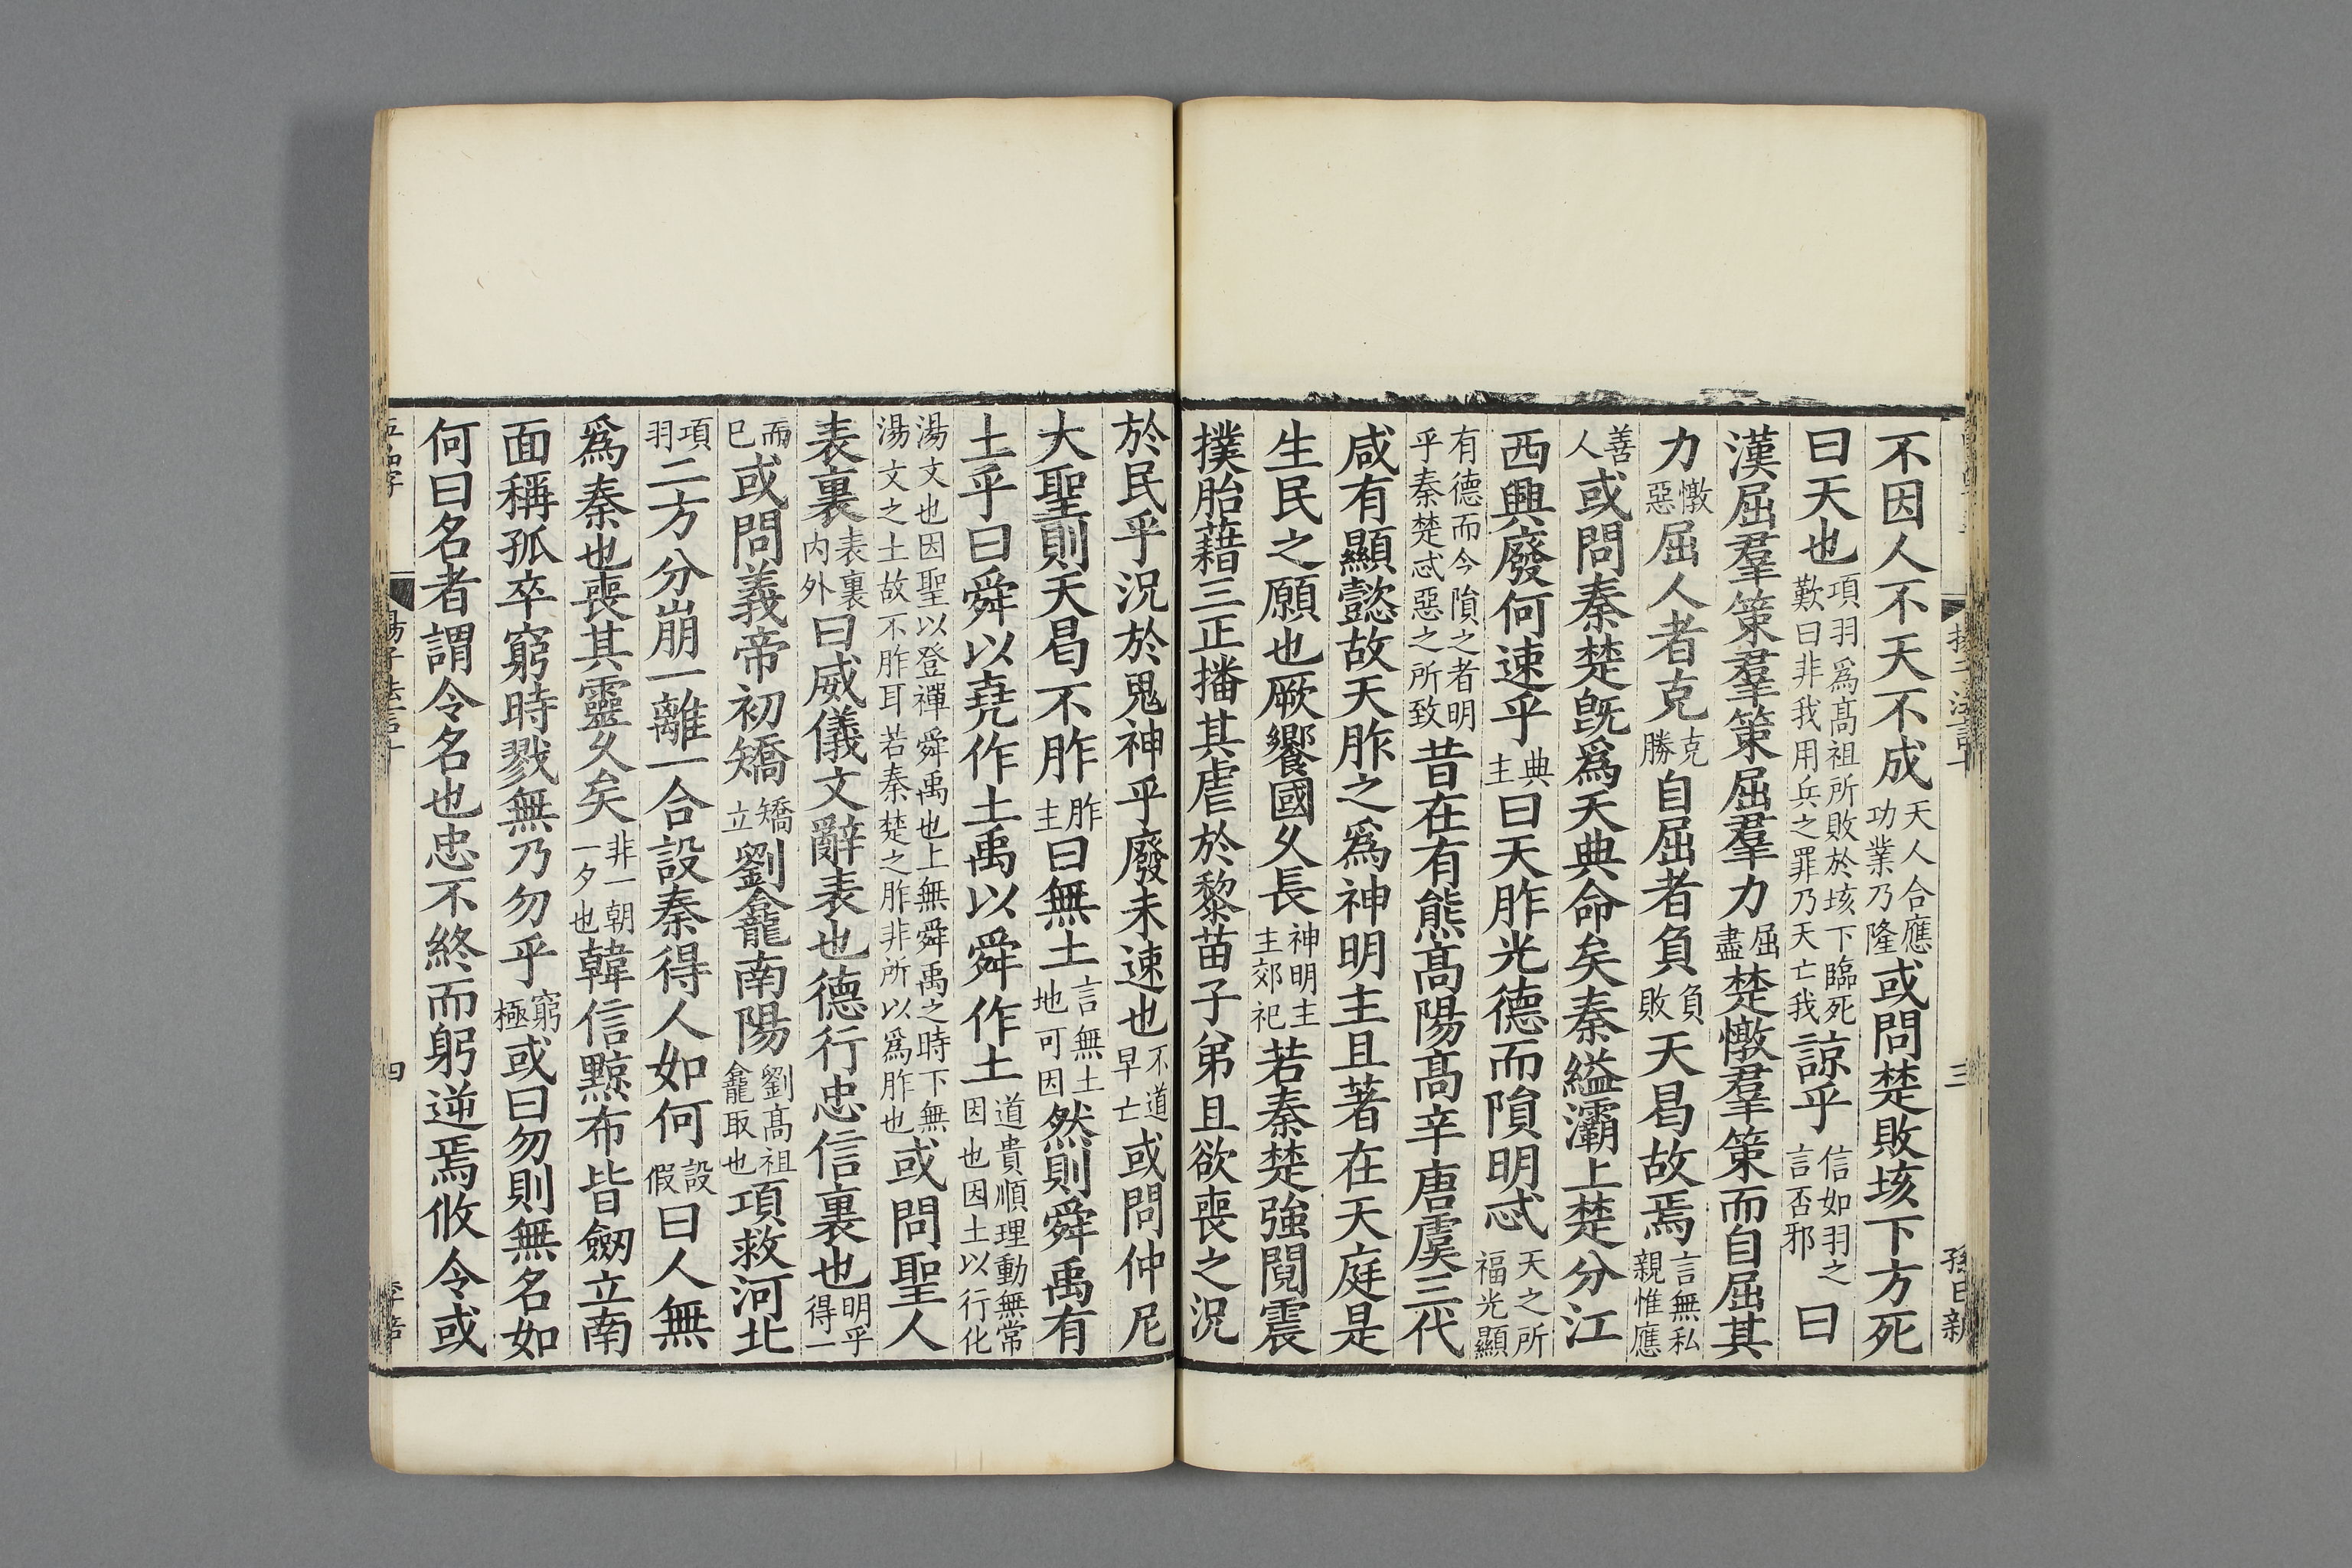 不因人不天不成天人合應功業乃隆或問楚敗垓下方死
曰天也項羽爲髙祖所敗於垓下臨死歎曰非我用兵之罪乃天亡我諒乎信如羽之言否邪曰
漢屈羣策羣策屈羣力屈盡楚憞羣策而自屈其
力憞惡屈人者克克勝自屈者負負敗天曷故焉言無私親惟應
善人或問秦楚旣爲天典命矣秦縊灞上楚分江
西興廢何速乎典主曰天胙光德而隕明忒天之所福光顯
有德而今隕之者明乎秦楚忒惡之所致昔在有熊髙陽髙辛唐虞三代
咸有顯懿故天胙之爲神明主且著在天庭是
生民之願也厥饗國乆長神明主主郊祀若秦楚強鬩震
撲胎藉三正播其虐於黎苗子弟且欲喪之況
於民乎況於鬼神乎廢未速也不道早亡或問仲尼
大聖則天曷不胙胙主曰無土言無土地可因然則舜禹有
土乎曰舜以堯作土禹以舜作土道貴順理動無常因也因土以行化
湯文也因聖以登禪舜禹也上無舜禹之時下無湯文之土故不胙耳若秦楚之胙非所以爲胙也或問聖人
表裏表裏內外曰威儀文辭表也德行忠信裏也明乎得一
而巳或問義帝初矯矯立劉龕南陽劉髙祖龕取也項救河北
項羽二方分崩一離一合設秦得人如何設假曰人無
爲秦也喪其靈乆矣非一朝一夕也韓信黥布皆劒立南
面稱孤卒窮時戮無乃勿乎窮極或曰勿則無名如
何曰名者謂令名也忠不終而躬逆焉攸令或
三
四